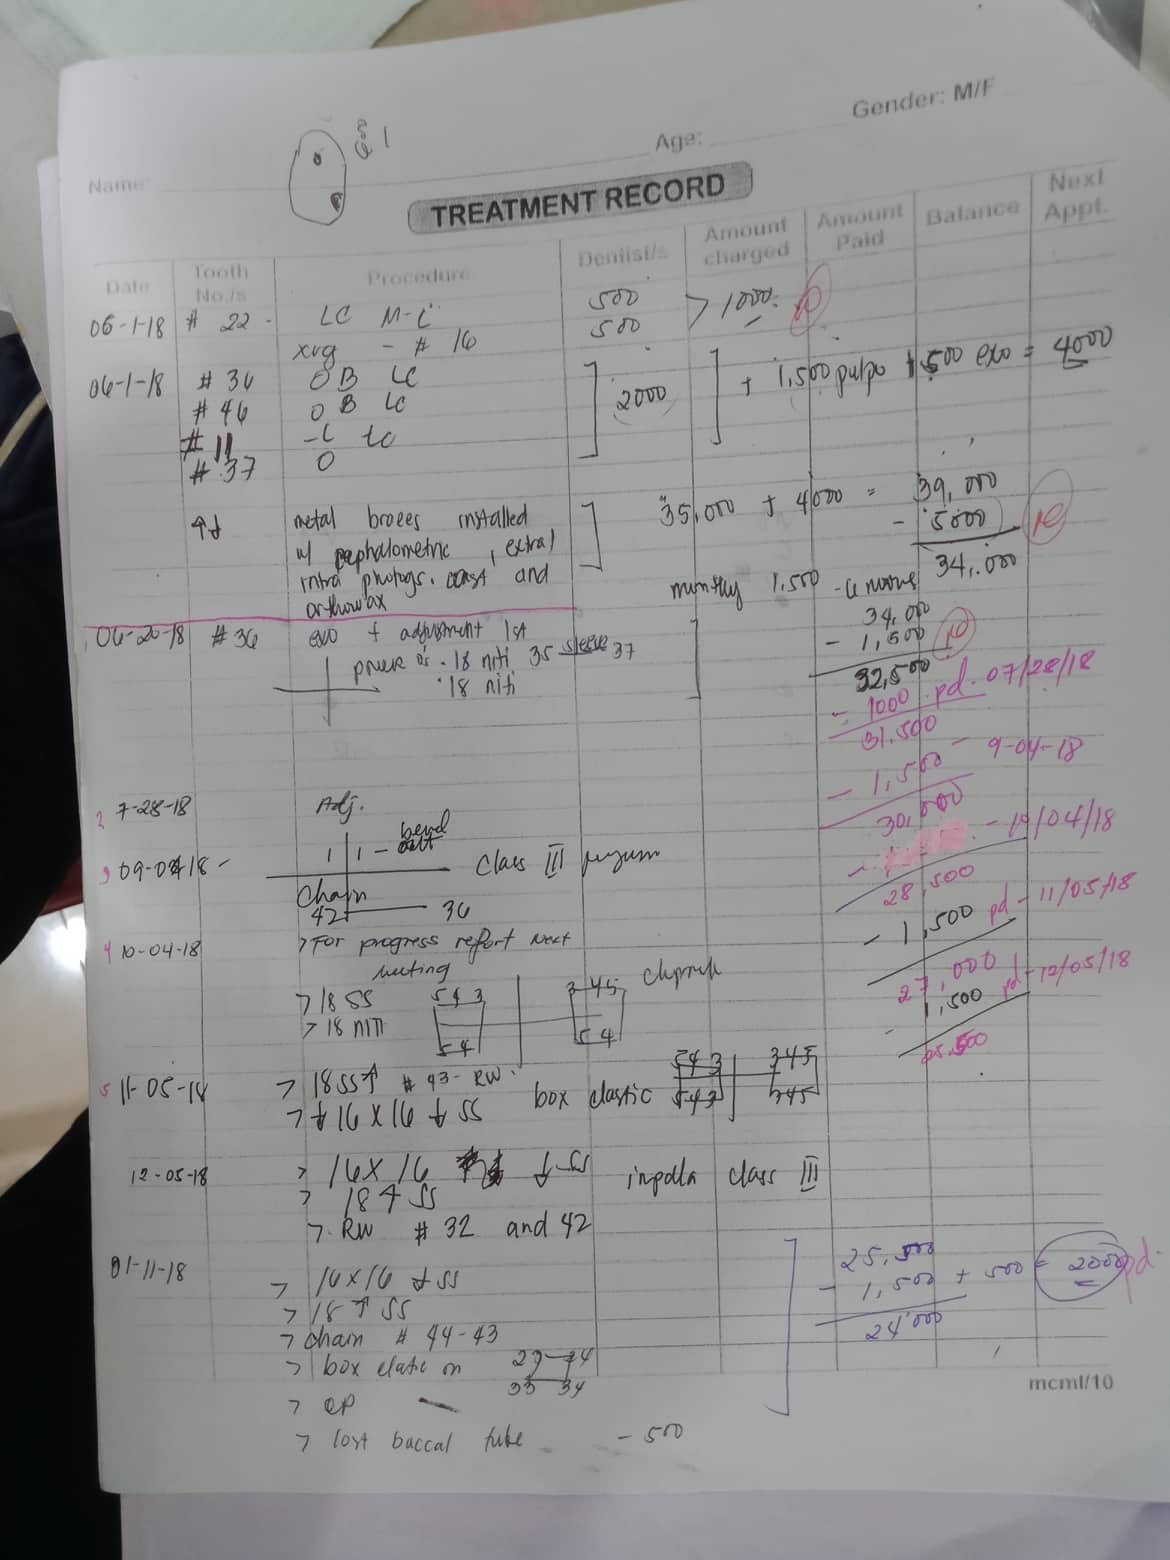 Gender: M/F
Name: Age:
TREATMENT RECORD
Date Tooth No./s Procedure Dentist/s Amount charged Amount Paid Balance Next Appt.
06-1-18 # 22 - LC M-i 500 > 1000.
xvg - # 16 500
06-1-18 # 36 O B LC
# 46 O B LC 2000 + 1,500 pulpo + 500 exo = 4000
# 11 -L LC
# 37 O
metal braces installed 35,000 + 4000 = 39,000
w/ cephalometric, extra/ - 5000
intra photogs. cast and 34,000
orthowax monthly 1,500
06-20-18 # 36 exo + adjustment 1st 34,000
- 1,500
.18 niti 35 sleeve 37 32,500
.18 niti - 1000 pd. 07/28/18
31,500
- 1,500 - 9-04-18
2 7-28-18 Adj. 30,000
1 | 1 - bend out - 10/04/18
3 09-04-18 - Class III 28,500
Chain
42 36 - 1,500 pd - 11/05/18
4 10-04-18 > For progress report next 27,000
meeting 1,500 pd - 12/05/18
> 18 SS 5 4 3 3 4 5
> 18 NITI 5 4 5 4 25,500
5 11-05-18 > 18 SS ↑ # 43 - RW. box elastic 543 345
> ↓ 16 x 16 ↓ SS 543 345
12-05-18 > 16 x 16 ↓ SS class III
> 18 ↑ SS
> RW # 32 and 42
01-11-18 > 16x16 ↓ SS 25,500
> 18 ↑ SS - 1,500 + 500 = 2000 pd.
> chain # 44-43 24,000
> box elatic on 23 24
33 34
> OP
> lost baccal tube - 500
mcml/10